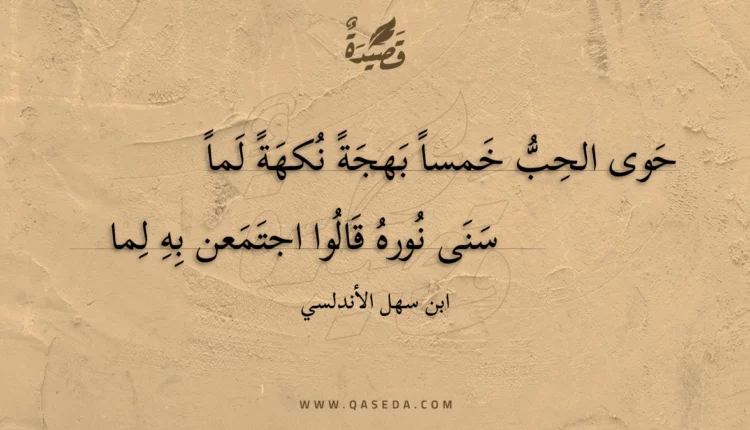 قَصِيْدَةٌ
حَوى الحِبُّ خَمساً بَهجَةً نُكهَةً لَماً
سَنَى نُورهُ قَالُوا اجتَمَعن بِهِ لِما
ابن سهل الأندلسي
WWW.QASEDA.COM